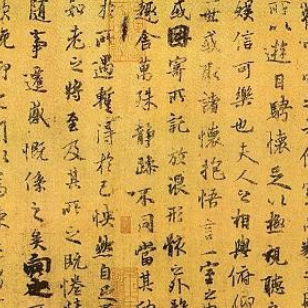 所以遊目騁懷足以極視聽之
娛信可樂也夫人之相與俯仰
世或取諸懷抱悟言一室之
或因寄所託放浪形骸之外
趣舍萬殊靜躁不同當其
於所遇暫得於己怏然自
知老之將至及其所之既惓情
隨事遷感慨係之矣向之